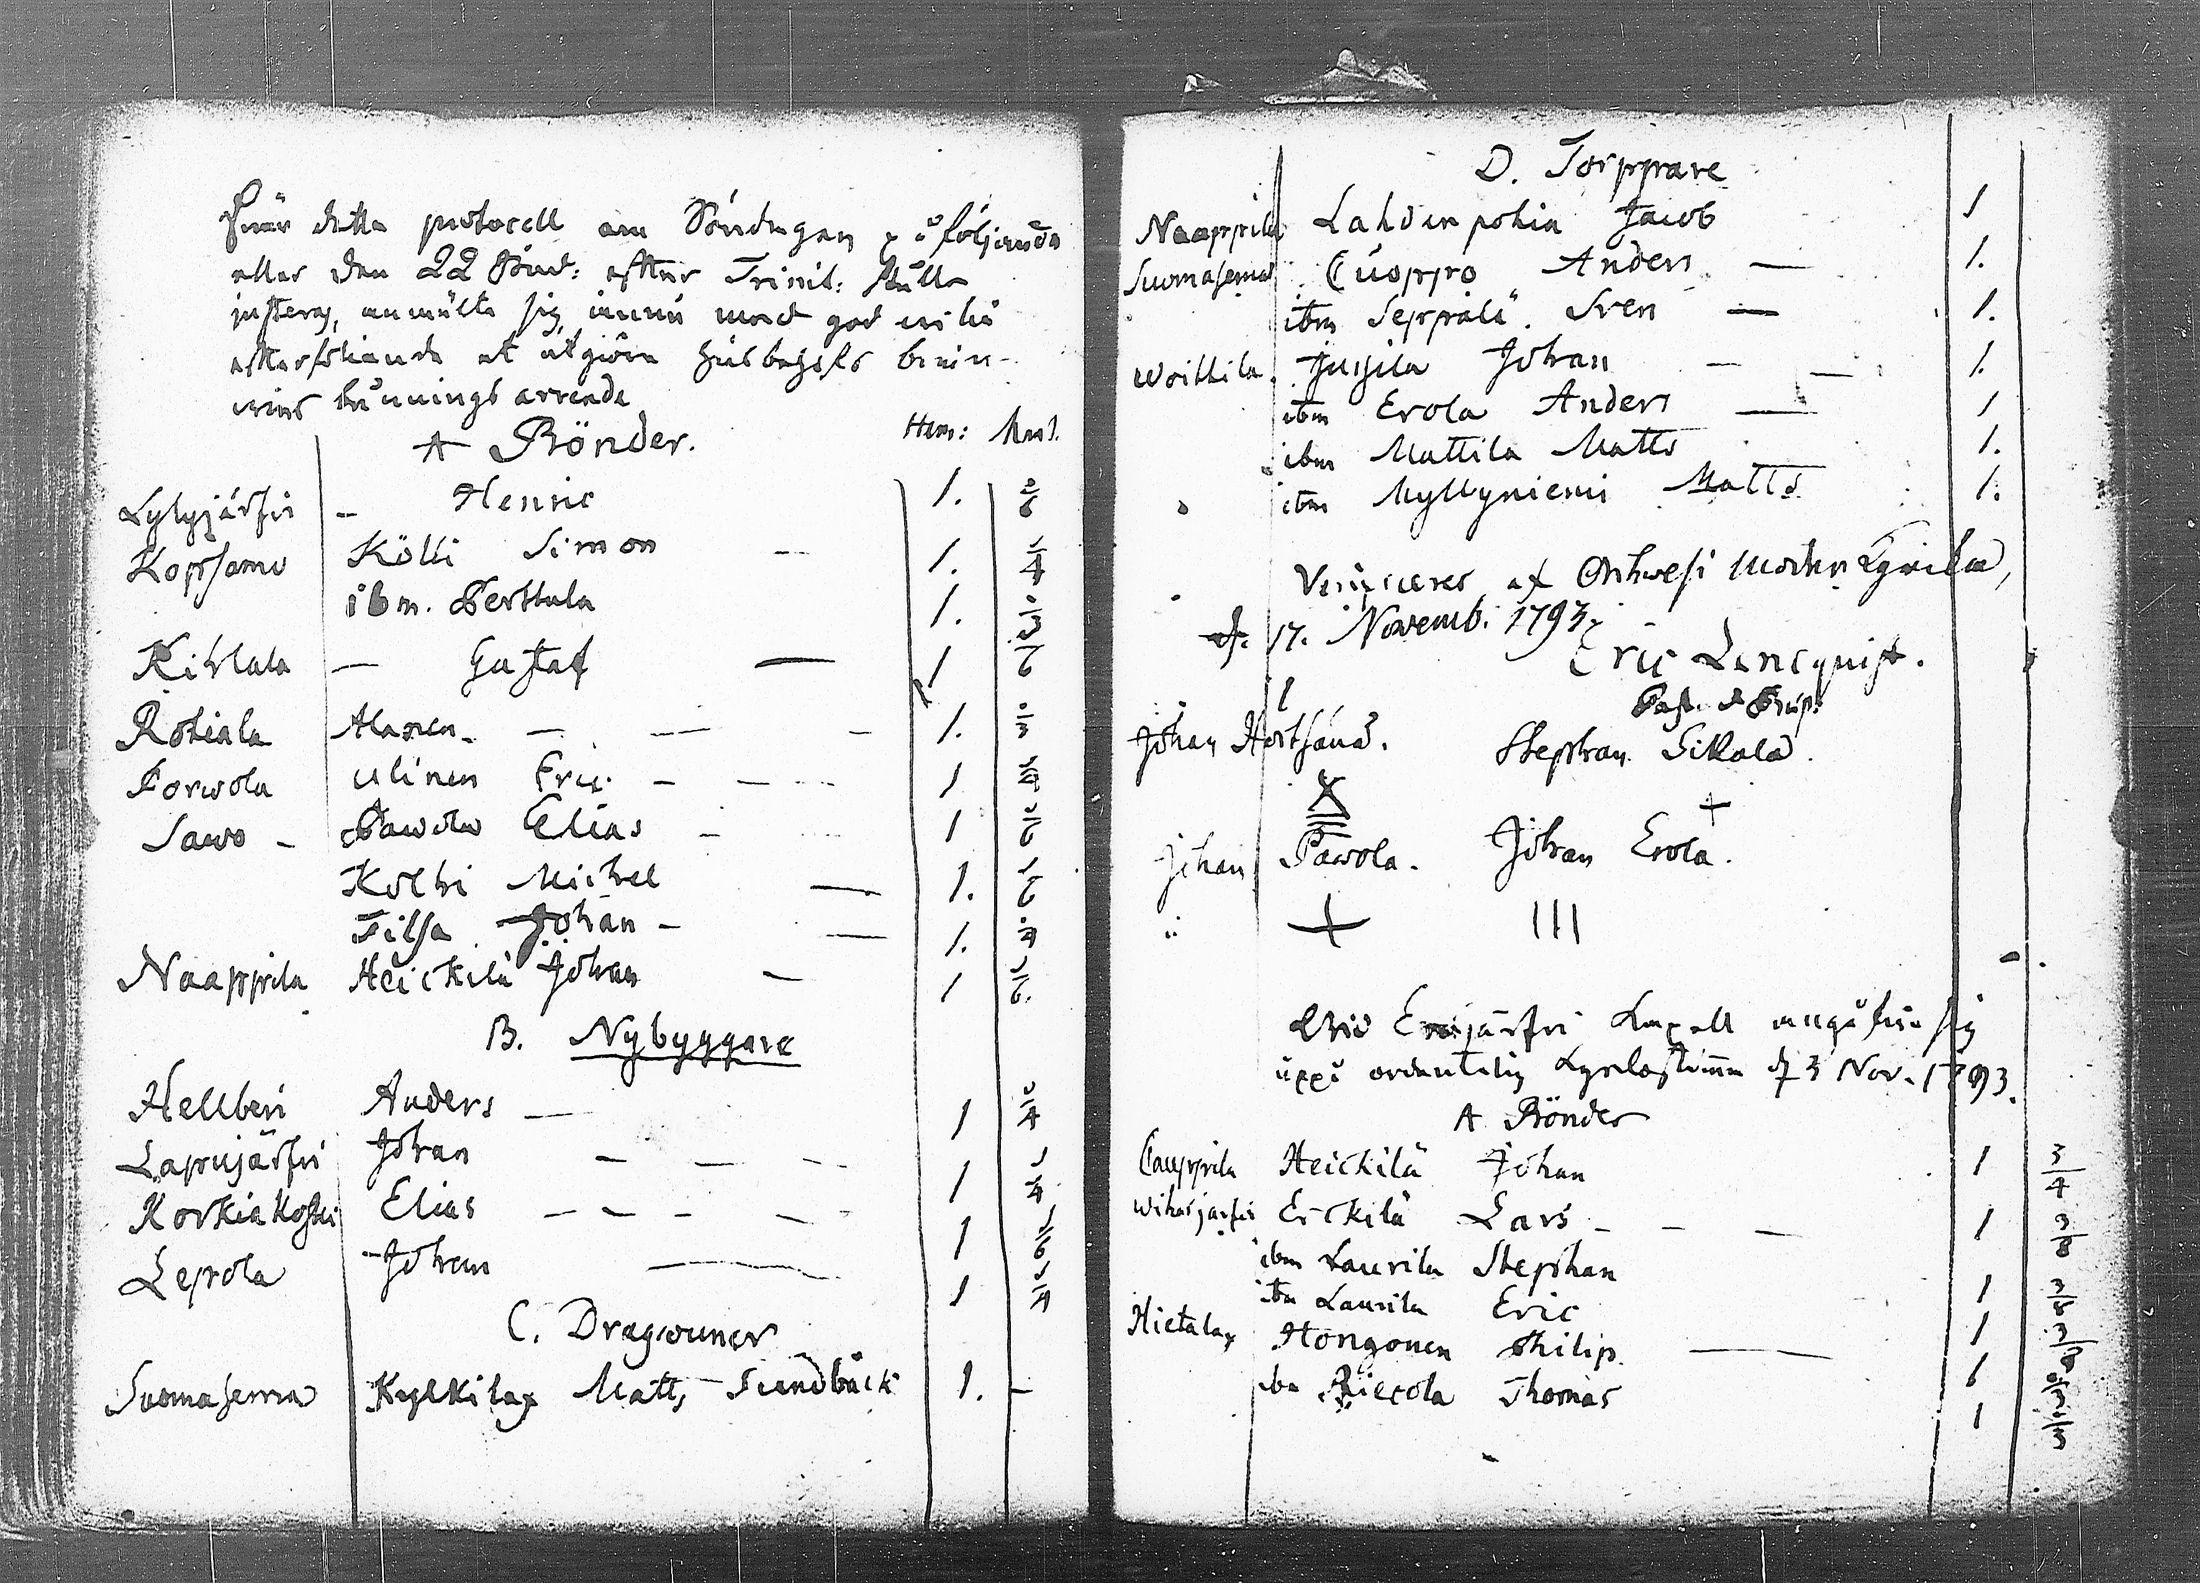 När detta protocoll om Söndagen på följande
eller den 22 Sönd: efter Trinit: skulle
justeras, anmälte sig ännu med god wilja
efterföljande at utgöra husbehofs brän-
wins bränningsarrende
A Bönder. Hem: Mtl.
Lylyjärfvi – Henric 1.
Kopsamo Kölli Simon – 1.
ibm. Perttula 1.
Kihlala – Gustaf – 1
Rohiala Alanen – – – 1.
Porwola Ulinen Eric – – 1
Sawo – Pawola Elias – 1
Kolhi Michel – 1.
Filsa Johan – – 1.
Naappila Heickilä Johan – 1
B. Nybyggare
Hellberi Anders – 1
Lapinjärfvi Johan – – – 1
Korkiakoski Elias – – – – 1
Lepola Johan – 1
C. Dragouner
Suomasema Kylkilax Matts Sundbäck 1. –
D. Torppare
Naappila Lahdenpohia Jacob 1
Suomasema Cuoppo Anders – 1.
ibm Seppälä. Sven – 1.
Woittila. Jussila Johan – – 1.
ibm Erola Anders – 1
ibm Mattila Matts 1.
ibm Myllyniemi Matts 1.
Verificeres af Orihwesi Moderkyrka,
d. 17. Novemb. 1793.
Eric Lencquist.
Past. & Præp.
Johan Hertsänä. Stephan Sikala.
+
Johan Pawola. Johan Erola.
+ III
Wid Eräjärfvi Capell angåfvo sig
uppå ordentelig kyrkostämma d 3 Nov. 1793.
A Bönder
Cauppila Heickilä Johan 1 3/4
Wihasjärfvi Erckilä Lars – – – 1 3/8
ibm Laurila Stephan 1
ibm Laurila Eric 1
Hietalax Hongonen Philip – 1
ibm Piecola Thomas 1